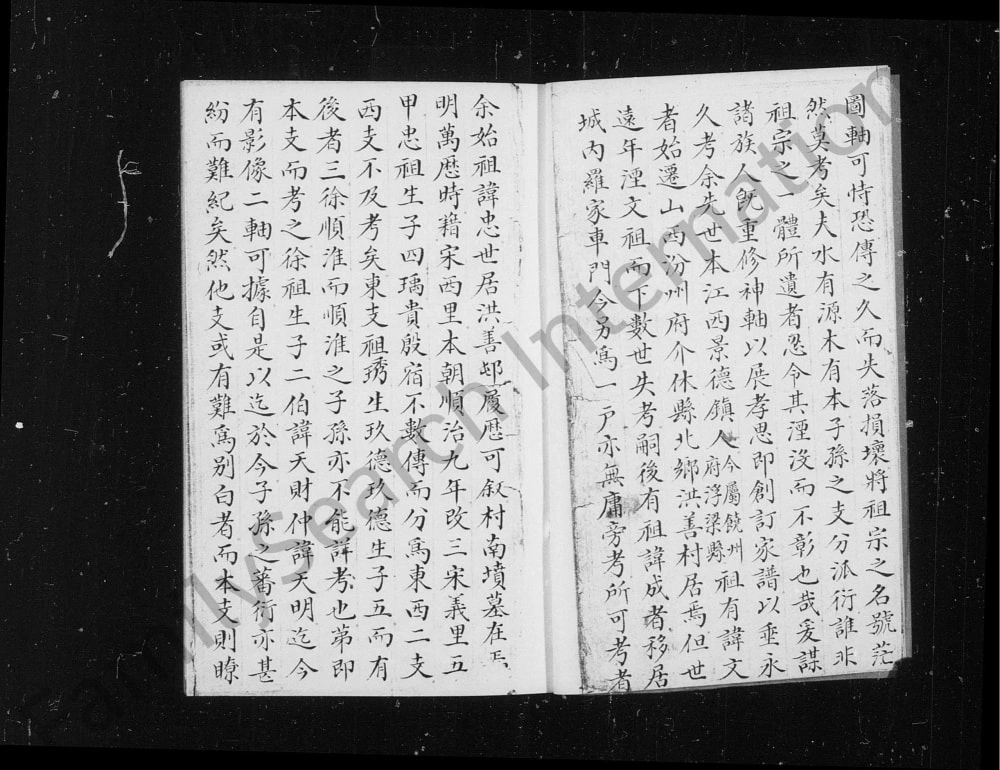 圖軸可恃恐傳之久而失落損壞將祖宗之名號茫
然莫考矣夫水有源木有本子孫之支分派衍誰非
祖宗之一體所遺者忍令其湮沒而不彰也哉爰謀
諸族人旣重修神軸以展孝思即創訂家譜以垂永
久考余先世本江西景德鎮人今屬饒州府浮梁縣祖有諱文
者始遷山西汾州府介休縣北鄉洪善村居焉但世
遠年湮文祖而下數世失考嗣後有祖諱成者移居
城內羅家車門今另寫一戸亦無庸旁考所可考者
余始祖諱忠世居洪善邨履歷可叙村南墳墓在焉
明萬歷時籍宋西里本朝順治九年改三宋義里五
甲忠祖生子四瑀貴殷宿不數傳而分爲東西二支
西支不及考矣東支祖琇生玖德玖德生子五而有
後者三徐順淮而順淮之子孫亦不能詳考也第即
本支而考之徐祖生子二伯諱天財仲諱天明迄今
有影像二軸可據自是以迄於今子孫之蕃衍亦甚
紛而難紀矣然他支或有難爲別白者而本支則瞭
FamilySearch International